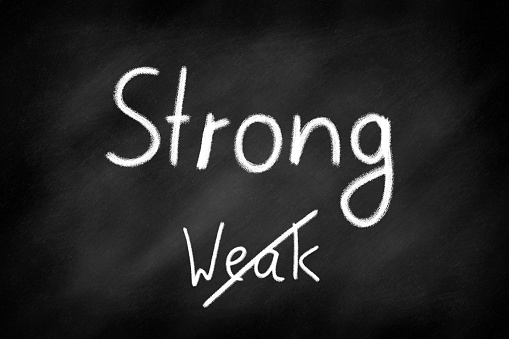 Strong
Weak